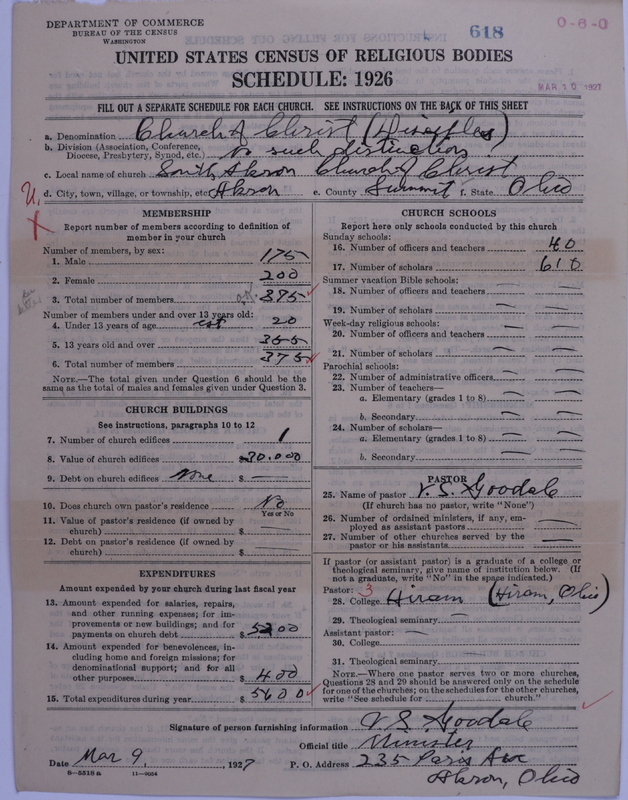 DEPARTMENT OF COMMERCE
BUREAU OF THE CENSUS
WASHINGTON
618
O-6-0
MAR 10 1927
UNITED STATES CENSUS OF RELIGIOUS BODIES
SCHEDULE: 1926
FILL OUT A SEPARATE SCHEDULE FOR EACH CHURCH. SEE INSTRUCTIONS ON THE BACK OF THIS SHEET
a. Denomination Church of Christ (Disciples)
b. Division (Association, Conference, Diocese, Presbytery, Synod, etc.) No such distinction
c. Local name of church South Akron Church of Christ
d. City, town, village, or township, etc. Akron e. County Summit f. State Ohio
U.
X
MEMBERSHIP
Report number of members according to definition of
member in your church
Number of members, by sex:
1. Male 175
2. Female 200
3. Total number of members 375
Number of members under and over 13 years old:
4. Under 13 years of age est 20
5. 13 years old and over 355
6. Total number of members 375
NOTE.—The total given under Question 6 should be the
same as the total of males and females given under Question 3.
CHURCH BUILDINGS
See instructions, paragraphs 10 to 12
7. Number of church edifices 1
8. Value of church edifices 30.000
9. Debt on church edifices none $ —
10. Does church own pastor's residence No
Yes or No
11. Value of pastor's residence (if owned by
church) $ —
12. Debt on pastor's residence (if owned by
church) $ —
EXPENDITURES
Amount expended by your church during last fiscal year
13. Amount expended for salaries, repairs,
and other running expenses; for im-
provements or new buildings; and for
payments on church debt $ 5200
14. Amount expended for benevolences, in-
cluding home and foreign missions; for
denominational support; and for all
other purposes $ 400
15. Total expenditures during year $ 5600
CHURCH SCHOOLS
Report here only schools conducted by this church
Sunday schools:
16. Number of officers and teachers 40
17. Number of scholars 610
Summer vacation Bible schools:
18. Number of officers and teachers — —
19. Number of scholars — —
Week-day religious schools:
20. Number of officers and teachers — —
21. Number of scholars — —
Parochial schools:
22. Number of administrative officers — —
23. Number of teachers—
a. Elementary (grades 1 to 8) — —
b. Secondary — —
24. Number of scholars—
a. Elementary (grades 1 to 8) — —
b. Secondary — —
PASTOR
25. Name of pastor V. S. Goodale
(If church has no pastor, write "None")
26. Number of ordained ministers, if any, em-
ployed as assistant pastors —
27. Number of other churches served by the
pastor or his assistants —
If pastor (or assistant pastor) is a graduate of a college or
theological seminary, give name of institution below. (If
not a graduate, write "No" in the space indicated.)
Pastor: 3
28. College Hiram (Hiram, Ohio)
29. Theological seminary —
Assistant pastor: —
30. College
31. Theological seminary —
NOTE.—Where one pastor serves two or more churches,
Questions 28 and 29 should be answered only on the schedule
for one of the churches; on the schedules for the other churches,
write "See schedule for ........ church."
Signature of person furnishing information V S Goodale
Official title Minister
Date Mar 9, 1927 P. O. Address 235 Paris Ave
Akron, Ohio
8—5518 a 11—9054